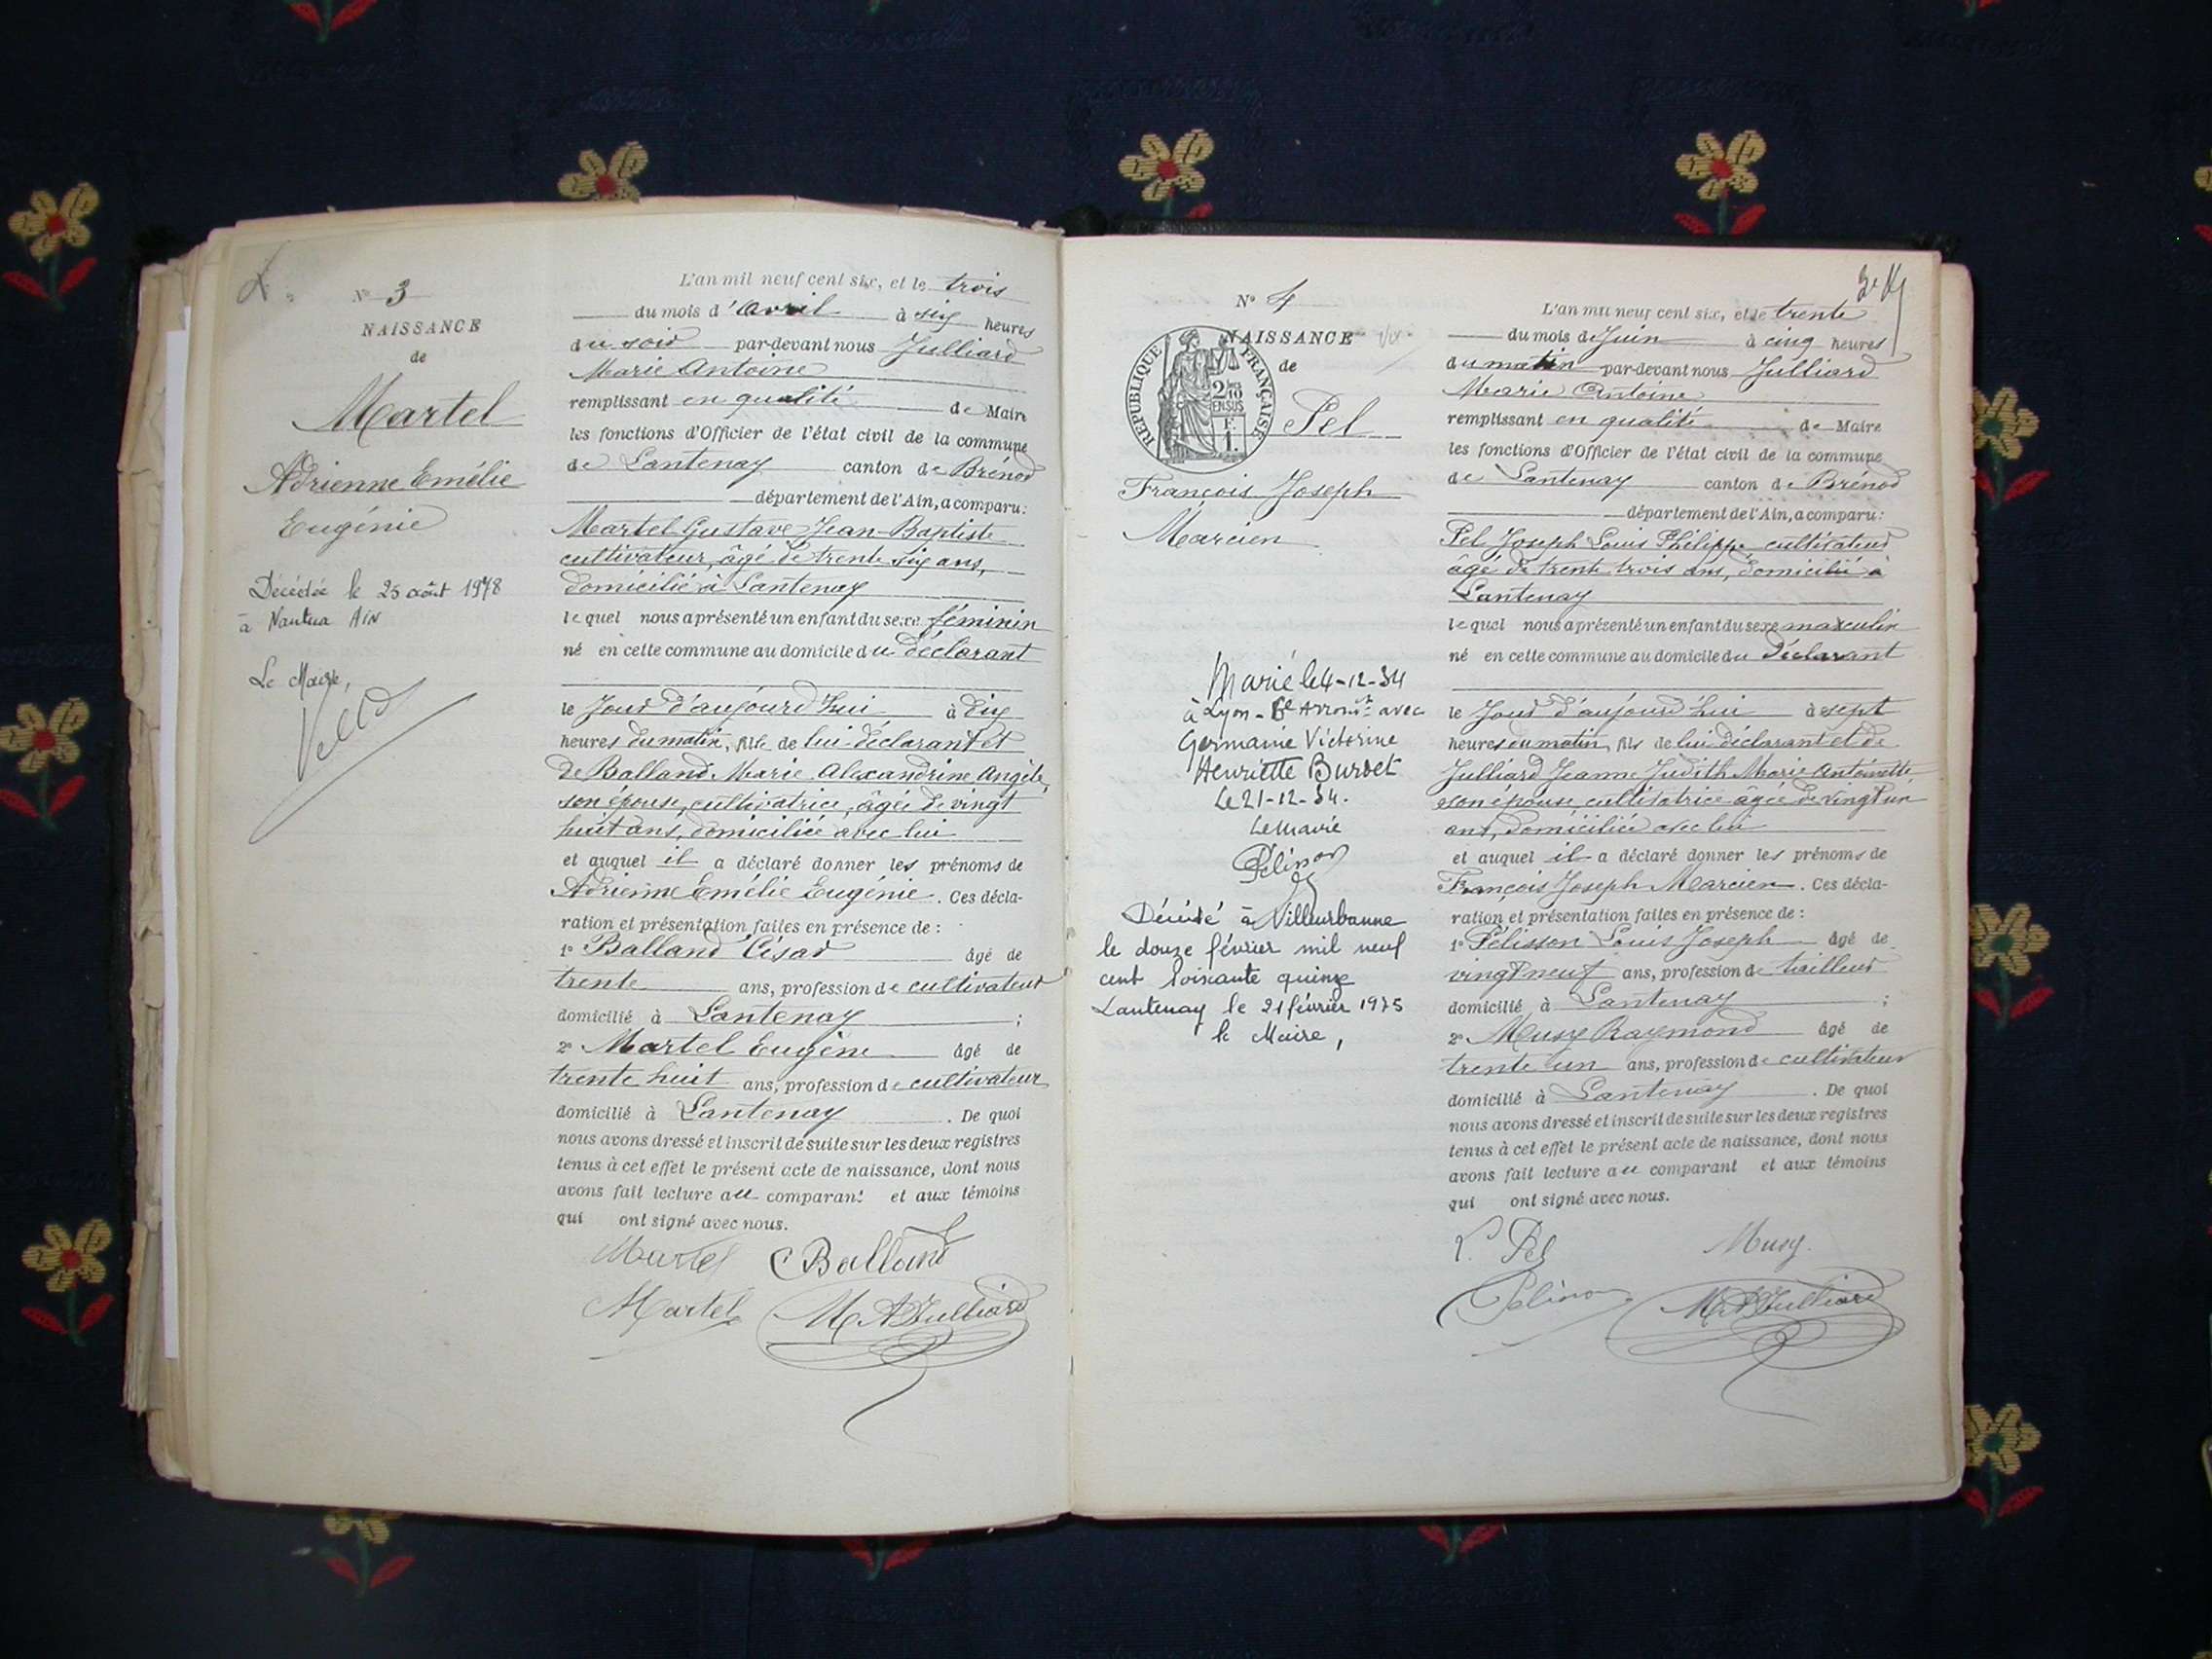 N° 3
NAISSANCE
de
Martel
Adrienne Emélie
Eugénie
Décédée le 25 août 1978
à Nantua AIN
Le Maire,
L'an mil neuf cent six, et le trois
du mois d'avril à six heures
du soir par-devant nous Julliard
Marie Antoine
remplissant en qualité de Maire
les fonctions d'Officier de l'état civil de la commune
de Lantenay canton de Brénod
département de l'Ain, a comparu:
Martel Gustave Jean-Baptiste
cultivateur, âgé de trente six ans,
domicilié à Lantenay
lequel nous a présenté un enfant du sexe féminin
né en cette commune au domicile du déclarant
le Jour d'aujourd'hui à dix
heures du matin, fille de lui déclarant et
de Balland Marie Alexandrine Angèle,
son épouse, cultivatrice, âgée de vingt
huit ans, domiciliée avec lui
et auquel il a déclaré donner les prénoms de
Adrienne Emélie Eugénie. Ces décla-
ration et présentation faites en présence de :
1° Balland César âgé de
trente ans, profession de cultivateur
domicilié à Lantenay ;
2° Martel Eugène âgé de
trente huit ans, profession de cultivateur
domicilié à Lantenay. De quoi
nous avons dressé et inscrit de suite sur les deux registres
tenus à cet effet le présent acte de naissance, dont nous
avons fait lecture au comparant et aux témoins
qui ont signé avec nous.
Martel C Balland
Martel M A Julliard
N° 4
NAISSANCE
de
REPUBLIQUE FRANÇAISE
2/10
EN SUS
F.
1.
Pel
François Joseph
Marcien
Marié le 4-12-34
à Lyon - 6e Arronist avec
Germaine Victorine
Henriette Burdet
Le 21-12-34.
Le Maire
Pélisson
Décédé à Villeurbanne
le douze février mil neuf
cent soixante quinze
Lantenay le 21 février 1975
le Maire,
L'an mil neuf cent six, et le trente
du mois de Juin à cinq heures
du matin par-devant nous Julliard
Marie Antoine
remplissant en qualité de Maire
les fonctions d'Officier de l'état civil de la commune
de Lantenay canton de Brénod
département de l'Ain, a comparu:
Pel Joseph Louis Philippe cultivateur
âgé de trente trois ans, domicilié à
Lantenay
lequel nous a présenté un enfant du sexe masculin
né en cette commune au domicile du déclarant
le Jour d'aujourd'hui à sept
heures du matin, fils de lui déclarant et de
Julliard Jeanne Judith Marie Antoinette,
son épouse, cultivatrice âgée de vingt un
ans, domiciliée avec lui
et auquel il a déclaré donner les prénoms de
François Joseph Marcien. Ces décla-
ration et présentation faites en présence de :
1° Pélisson Louis Joseph âgé de
vingt neuf ans, profession de tailleur
domicilié à Lantenay ;
2° Musy Raymond âgé de
trente un ans, profession de cultivateur
domicilié à Lantenay. De quoi
nous avons dressé et inscrit de suite sur les deux registres
tenus à cet effet le présent acte de naissance, dont nous
avons fait lecture au comparant et aux témoins
qui ont signé avec nous.
Pel Musy
Pélisson M A Julliard